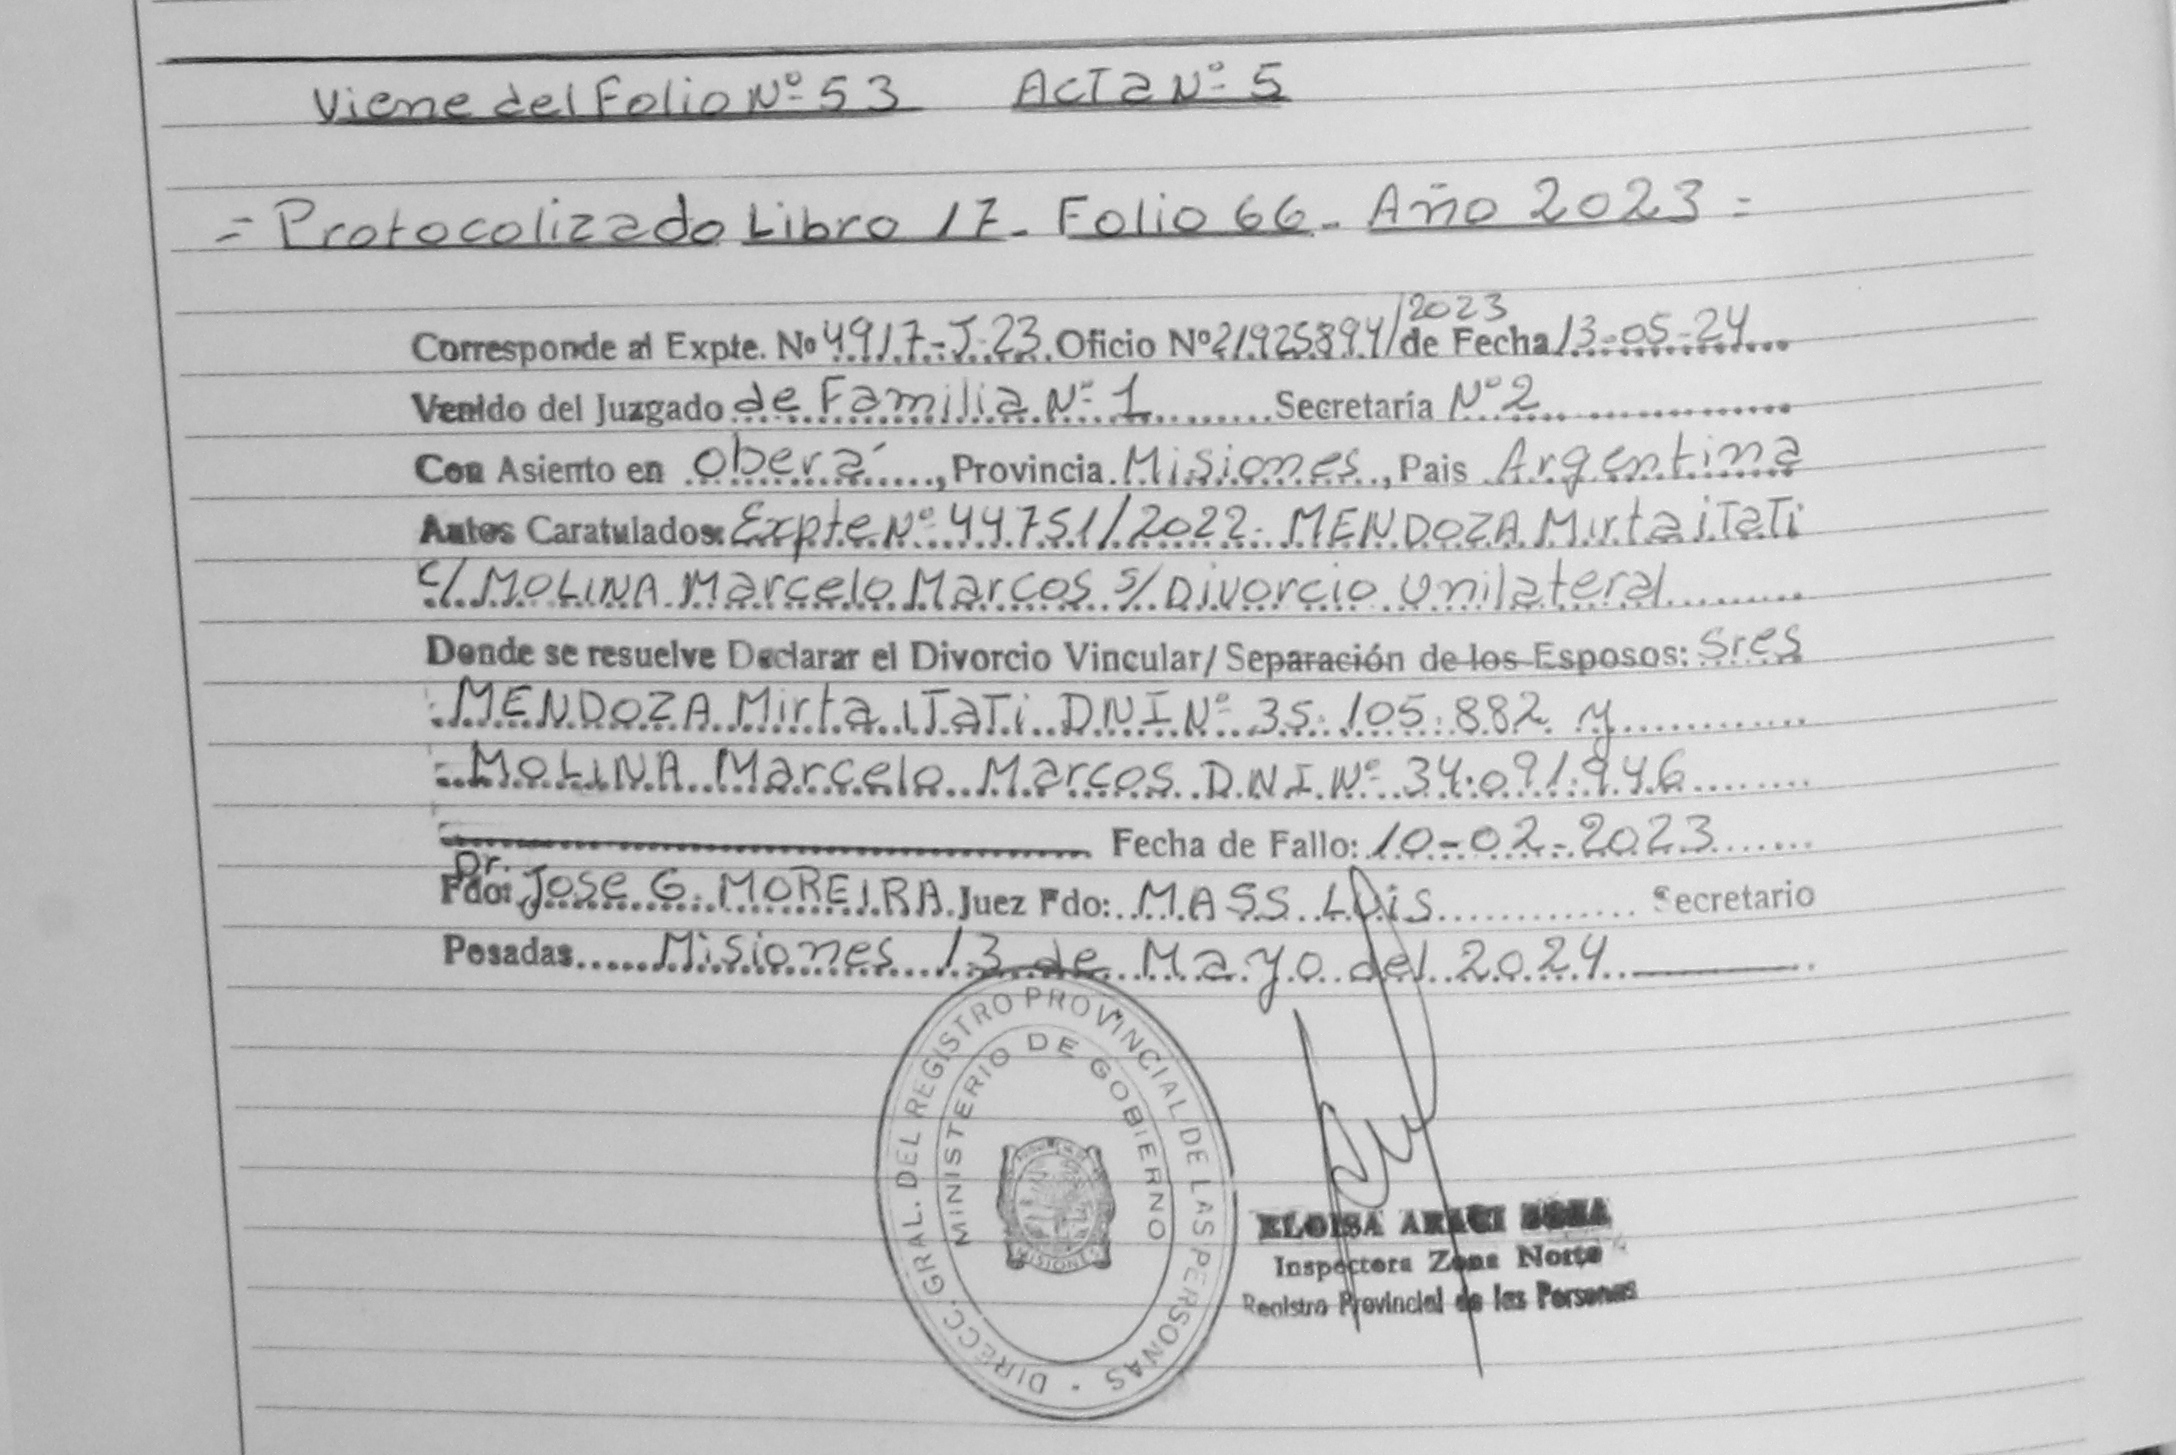 Viene del Folio Nº 53 Acta Nº 5
= Protocolizado Libro 17 - Folio 66 - Año 2023 =
Corresponde al Expte. Nº 4917-J-23 Oficio Nº 21925894/2023 de Fecha 13-05-24
Venido del Juzgado de Familia Nº 1 Secretaría Nº 2
Con Asiento en Oberá, Provincia Misiones, Pais Argentina
Autos Caratulados: Expte Nº 44751/2022 - MENDOZA Mirta iTaTi
c/ MOLINA Marcelo Marcos s/ Divorcio Unilateral
Donde se resuelve Declarar el Divorcio Vincular/ Separación de los Esposos: Sres
MENDOZA Mirta iTaTi DNI Nº 35.105.882 y
MOLINA Marcelo Marcos D.N.I. Nº 34.091.946
Fecha de Fallo: 10-02-2023
Fdo: Dr. Jose G. MOREIRA Juez Fdo: MASS Luis Secretario
Posadas Misiones 13 de Mayo del 2024
DIRECC. GRAL. DEL REGISTRO PROVINCIAL DE LAS PERSONAS
MINISTERIO DE GOBIERNO
MISIONES
ELOISA ARACI
Inspectora Zona Norte
Registro Provincial de las Personas